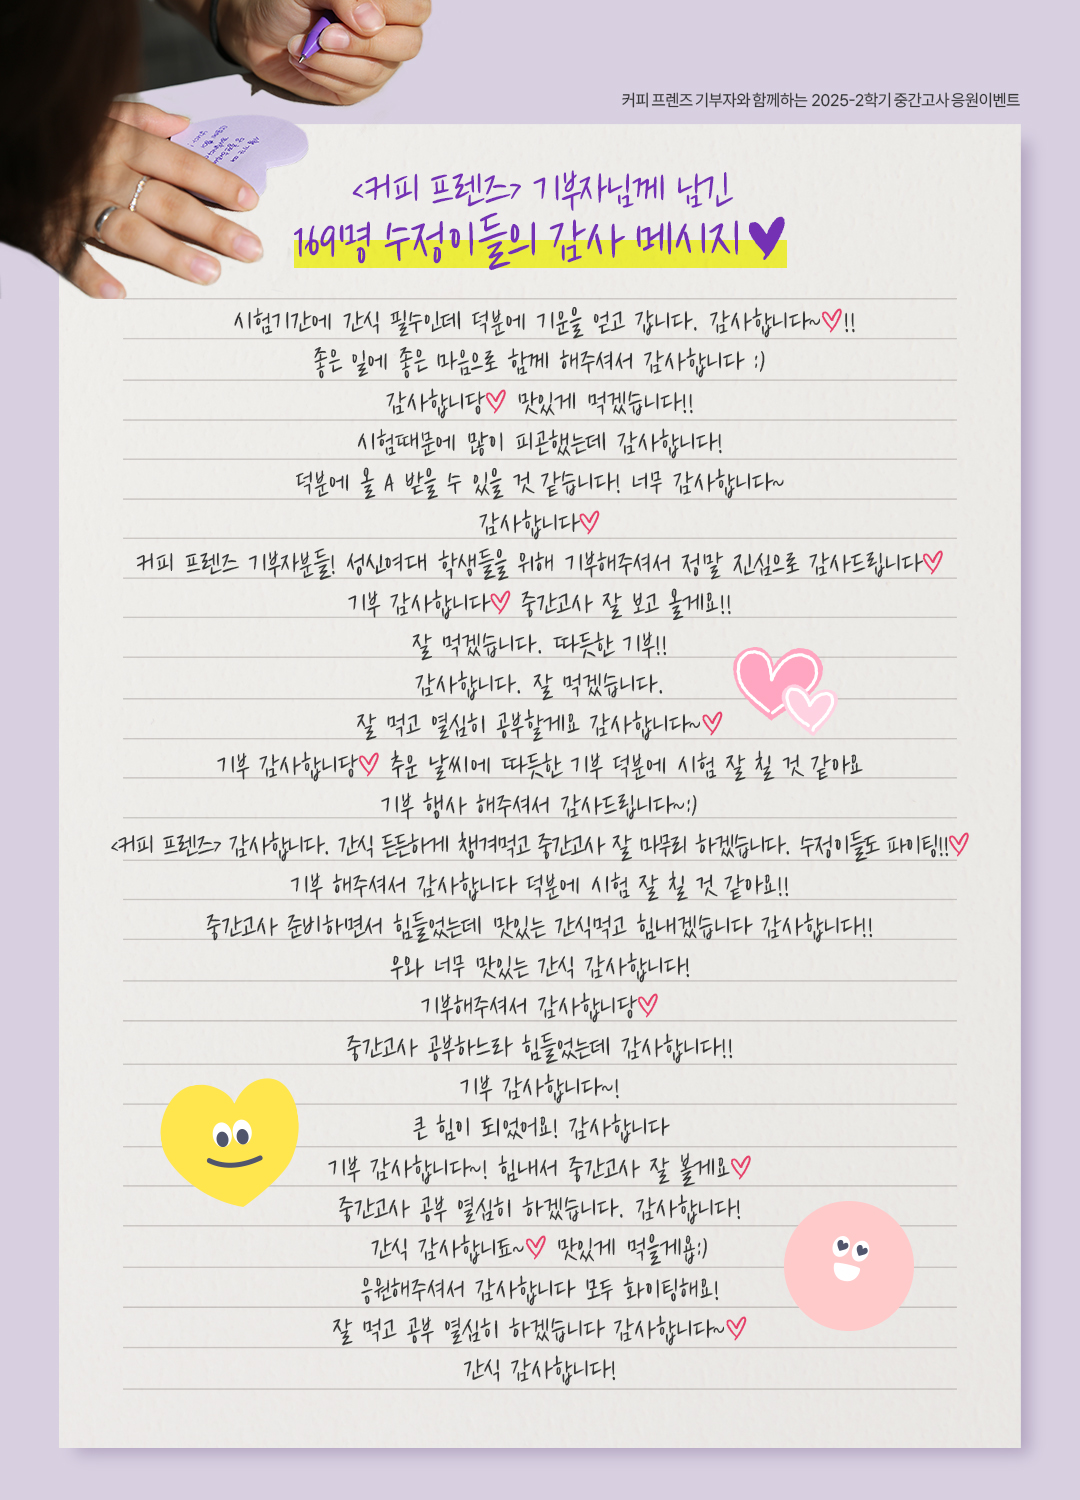 커피 프렌즈 기부자와 함께하는 2025-2학기 중간고사 응원이벤트
<커피 프렌즈> 기부자님께 남긴
169명 수정이들의 감사 메시지♥
시험기간에 간식 필수인데 덕분에 기운을 얻고 갑니다. 감사합니다~♡!!
좋은 일에 좋은 마음으로 함께 해주셔서 감사합니다 :)
감사합니당♡ 맛있게 먹겠습니다!!
시험때문에 많이 피곤했는데 감사합니다!
덕분에 올 A 받을 수 있을 것 같습니다! 너무 감사합니다~
감사합니다♡
커피 프렌즈 기부자분들! 성신여대 학생들을 위해 기부해주셔서 정말 진심으로 감사드립니다♡
기부 감사합니다♡ 중간고사 잘 보고 올게요!!
잘 먹겠습니다. 따듯한 기부!!
감사합니다. 잘 먹겠습니다.
잘 먹고 열심히 공부할게요 감사합니다~♡
기부 감사합니당♡ 추운 날씨에 따듯한 기부 덕분에 시험 잘 칠 것 같아요
기부 행사 해주셔서 감사드립니다~:)
<커피 프렌즈> 감사합니다. 간식 든든하게 챙겨먹고 중간고사 잘 마무리 하겠습니다. 수정이들도 파이팅!!♡
기부 해주셔서 감사합니다 덕분에 시험 잘 칠 것 같아요!!
중간고사 준비하면서 힘들었는데 맛있는 간식먹고 힘내겠습니다 감사합니다!!
우와 너무 맛있는 간식 감사합니다!
기부해주셔서 감사합니당♡
중간고사 공부하느라 힘들었는데 감사합니다!!
기부 감사합니다~!
큰 힘이 되었어요! 감사합니다
기부 감사합니다~! 힘내서 중간고사 잘 볼게요♡
중간고사 공부 열심히 하겠습니다. 감사합니다!
간식 감사합니됴~♡ 맛있게 먹을게욥:)
응원해주셔서 감사합니다 모두 화이팅해요!
잘 먹고 공부 열심히 하겠습니다 감사합니다~♡
간식 감사합니다!